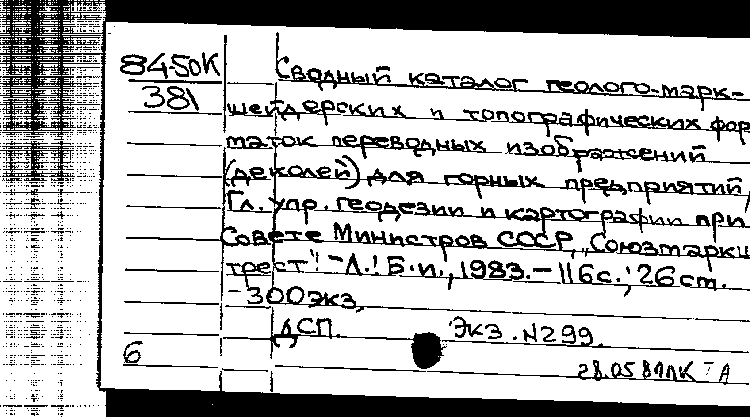 84-50К
381
Сводный каталог геолого-марк-
шейдерских и топографических фор
маток переводных изображений
(деколей) для горных предприятий/
Гл. упр. геодезии и картографии при
Совете Министров СССР, "Союзмарки
трест". - Л.: Б.и., 1983. - 116с.; 26см.
- 300экз.
ДСП. Экз. N299.
6
28.05.84